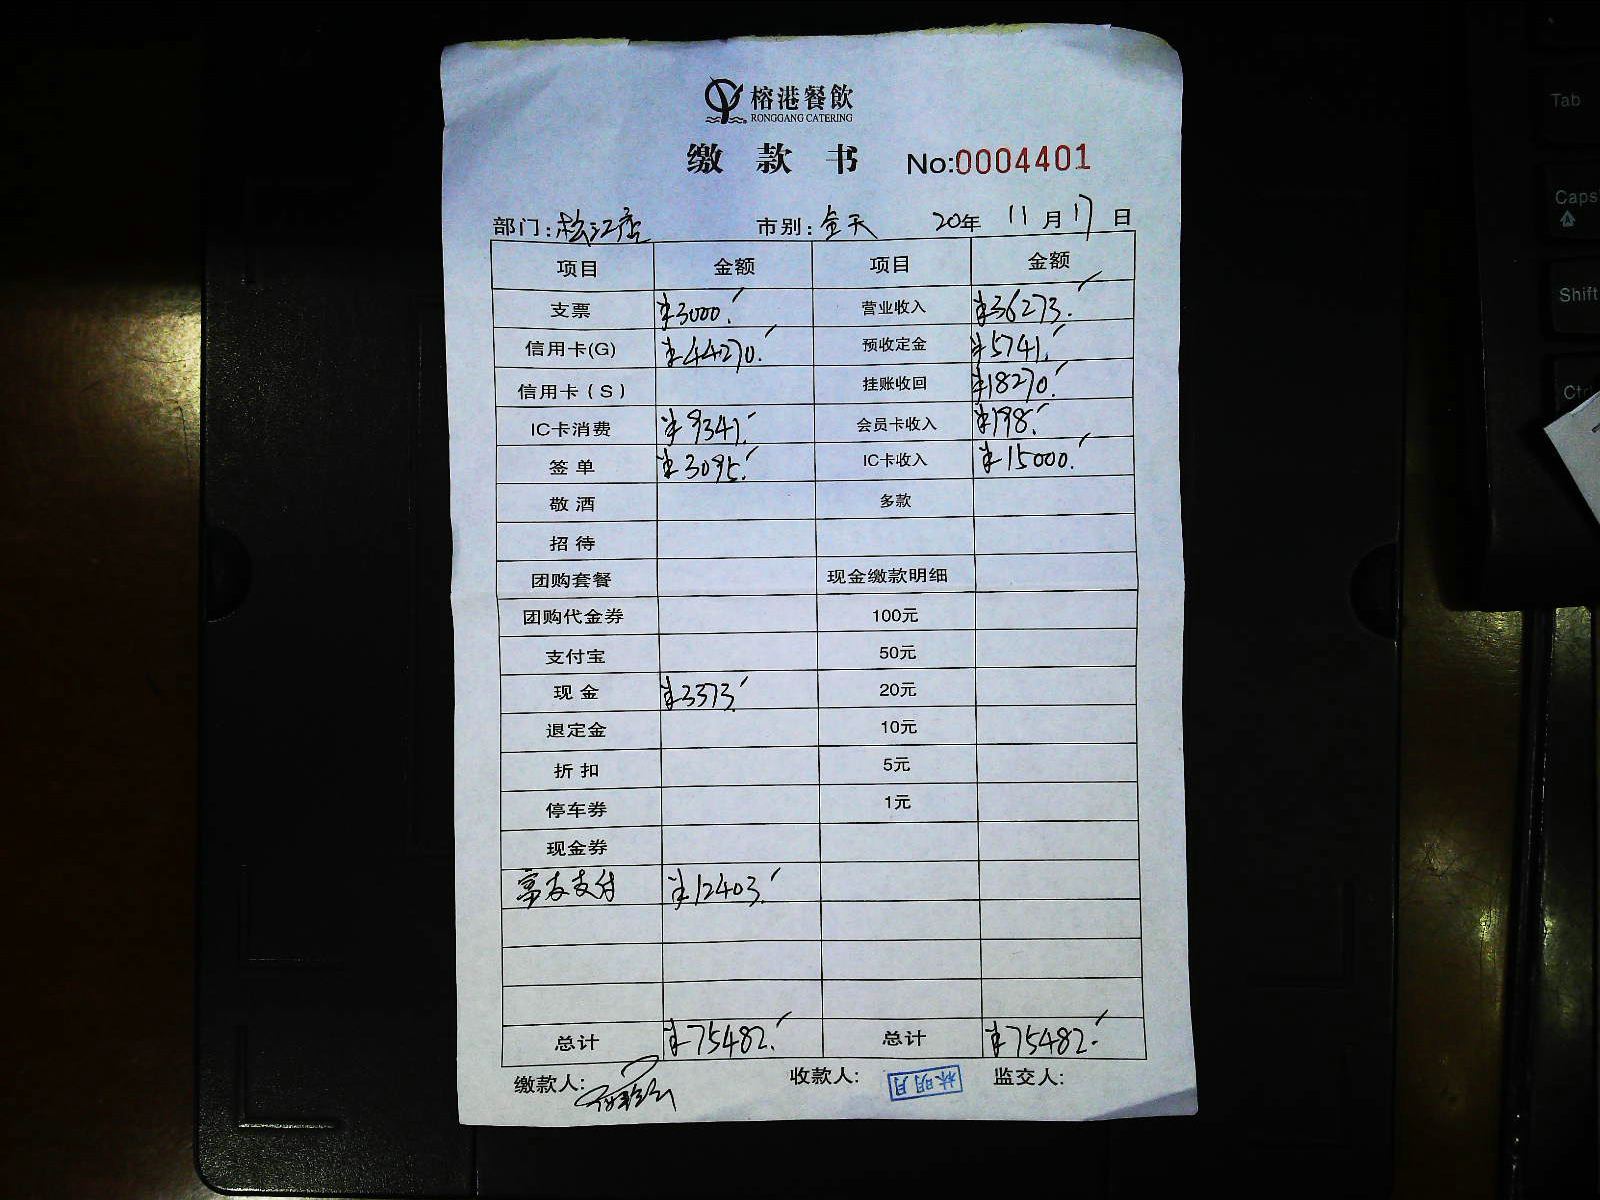 榕港餐飲
RONGGANG CATERING
缴款书 No:0004401
部门:松江店 市别:全天 20年 11月17日
项目 金额 项目 金额
支票 ¥3000. 营业收入 ¥36273.
信用卡(G) ¥44270. 预收定金 ¥5741.
信用卡(S) 挂账收回 ¥18270.
IC卡消费 ¥9341. 会员卡收入 ¥198.
签单 ¥3095. IC卡收入 ¥15000.
敬酒 多款
招待
团购套餐 现金缴款明细
团购代金券 100元
支付宝 50元
现金 ¥3373. 20元
退定金 10元
折扣 5元
停车券 1元
现金券
富友支付 ¥12403.
总计 ¥75482. 总计 ¥75482.
缴款人: 收款人: 林明月 监交人:
Tab
Caps
Shift
Ctr